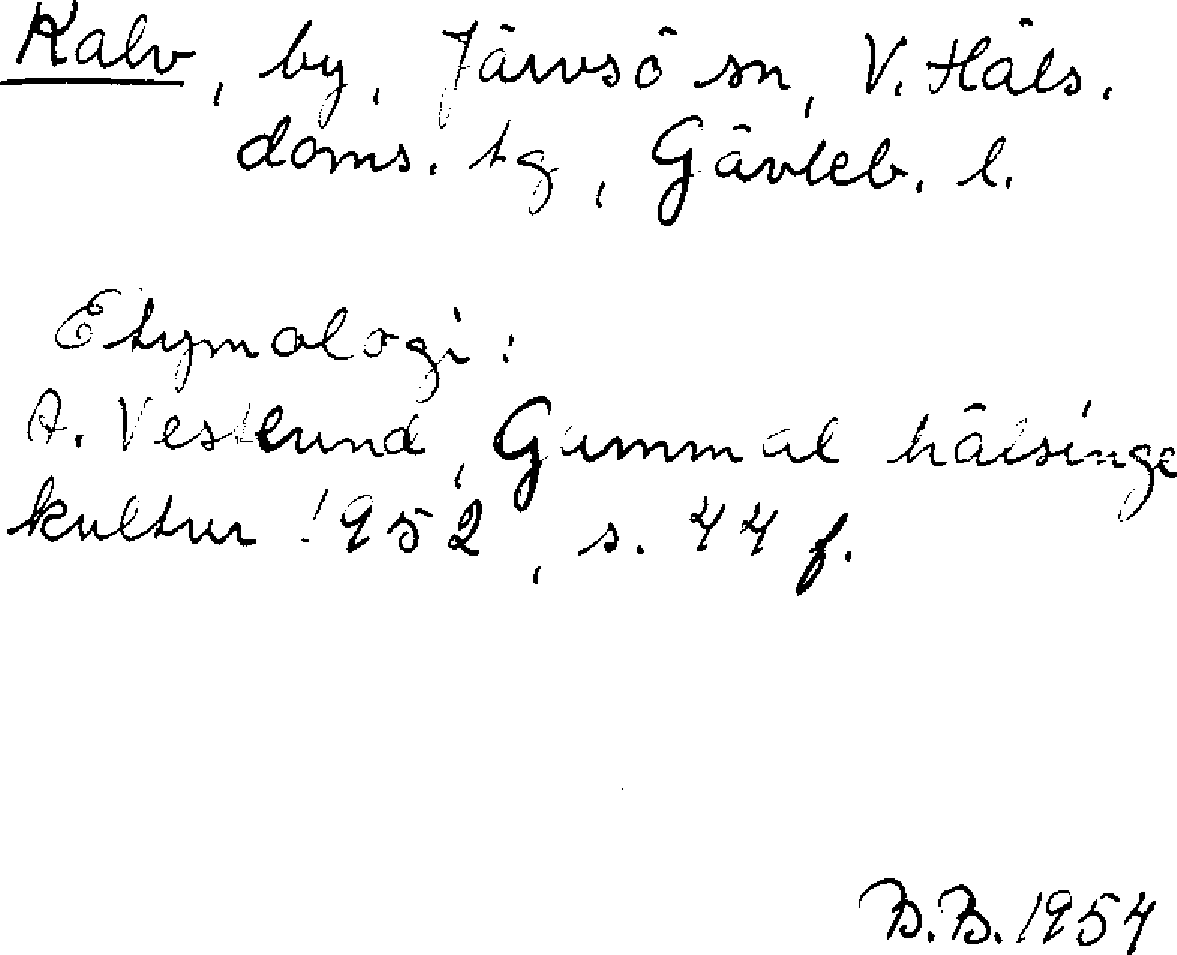 Kalv, by, Järvsö sn, V. Häls.
doms. tg, Gävleb. l.
Etymologi:
A. Vestlund, Gammal hälsinge
kultur 1952, s. 44 f.
B.B. 1954